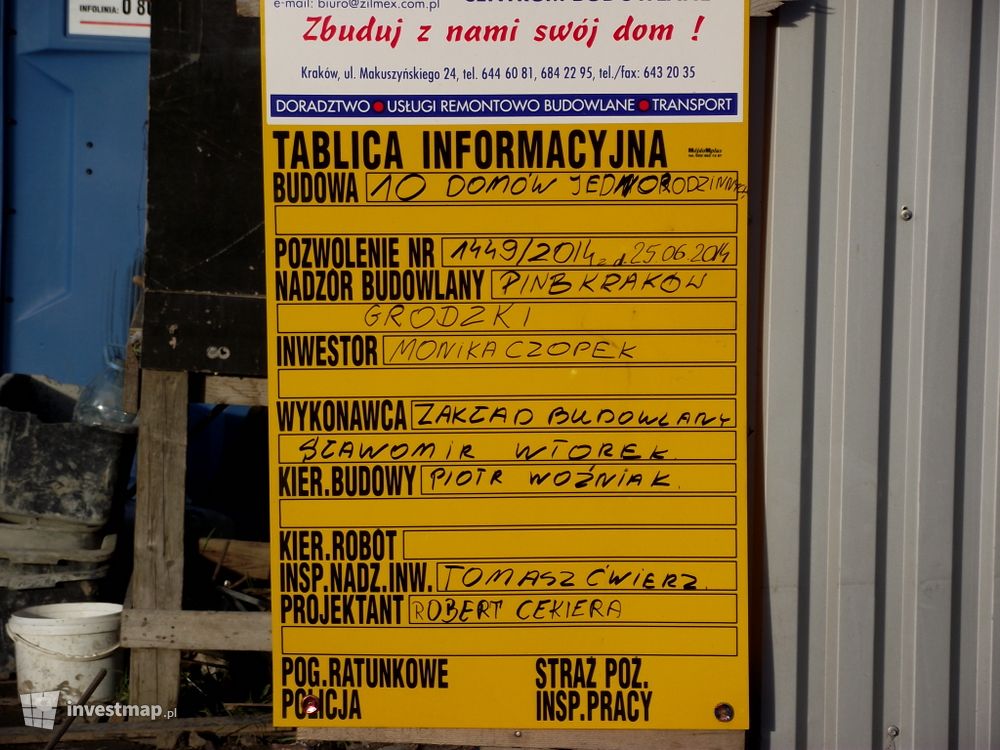 INFOLINIA: 0 80
e-mail: biuro@zilmex.com.pl CENTRUM BUDOWLANE
Zbuduj z nami swój dom !
Kraków, ul. Makuszyńskiego 24, tel. 644 60 81, 684 22 95, tel./fax: 643 20 35
DORADZTWO • USŁUGI REMONTOWO BUDOWLANE • TRANSPORT
TABLICA INFORMACYJNA
BUDOWA 10 DOMÓW JEDNORODZINNYCH
POZWOLENIE NR 1449/2014 z d. 25.06.2014
NADZÓR BUDOWLANY PINB KRAKÓW
GRODZKI
INWESTOR MONIKA CZOPEK
WYKONAWCA ZAKŁAD BUDOWLANY
SŁAWOMIR WTOREK.
KIER.BUDOWY PIOTR WOŹNIAK.
KIER.ROBÓT
INSP.NADZ.INW. TOMASZ ĆWIERZ.
PROJEKTANT ROBERT CEKIERA
POG.RATUNKOWE STRAŻ POŻ.
POLICJA INSP.PRACY
investmap.pl